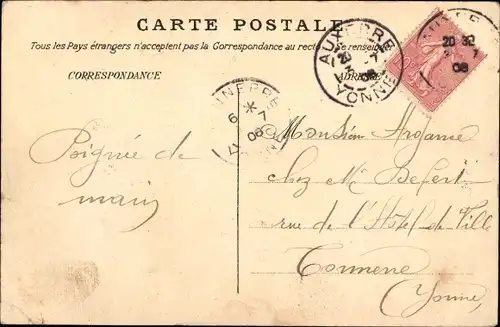 CARTE POSTALE
Tous les Pays étrangers n'acceptent pas la Correspondance au recto Se renseigner
CORRESPONDANCE
ADRESSE
AUXERRE
YONNE
7
08
20 32
7
08
6 7
08
Poignée de
main
Monsieur
chez Mr Defert
rue de l'Hôtel-de-Ville
Tonnerre
(Yonne)